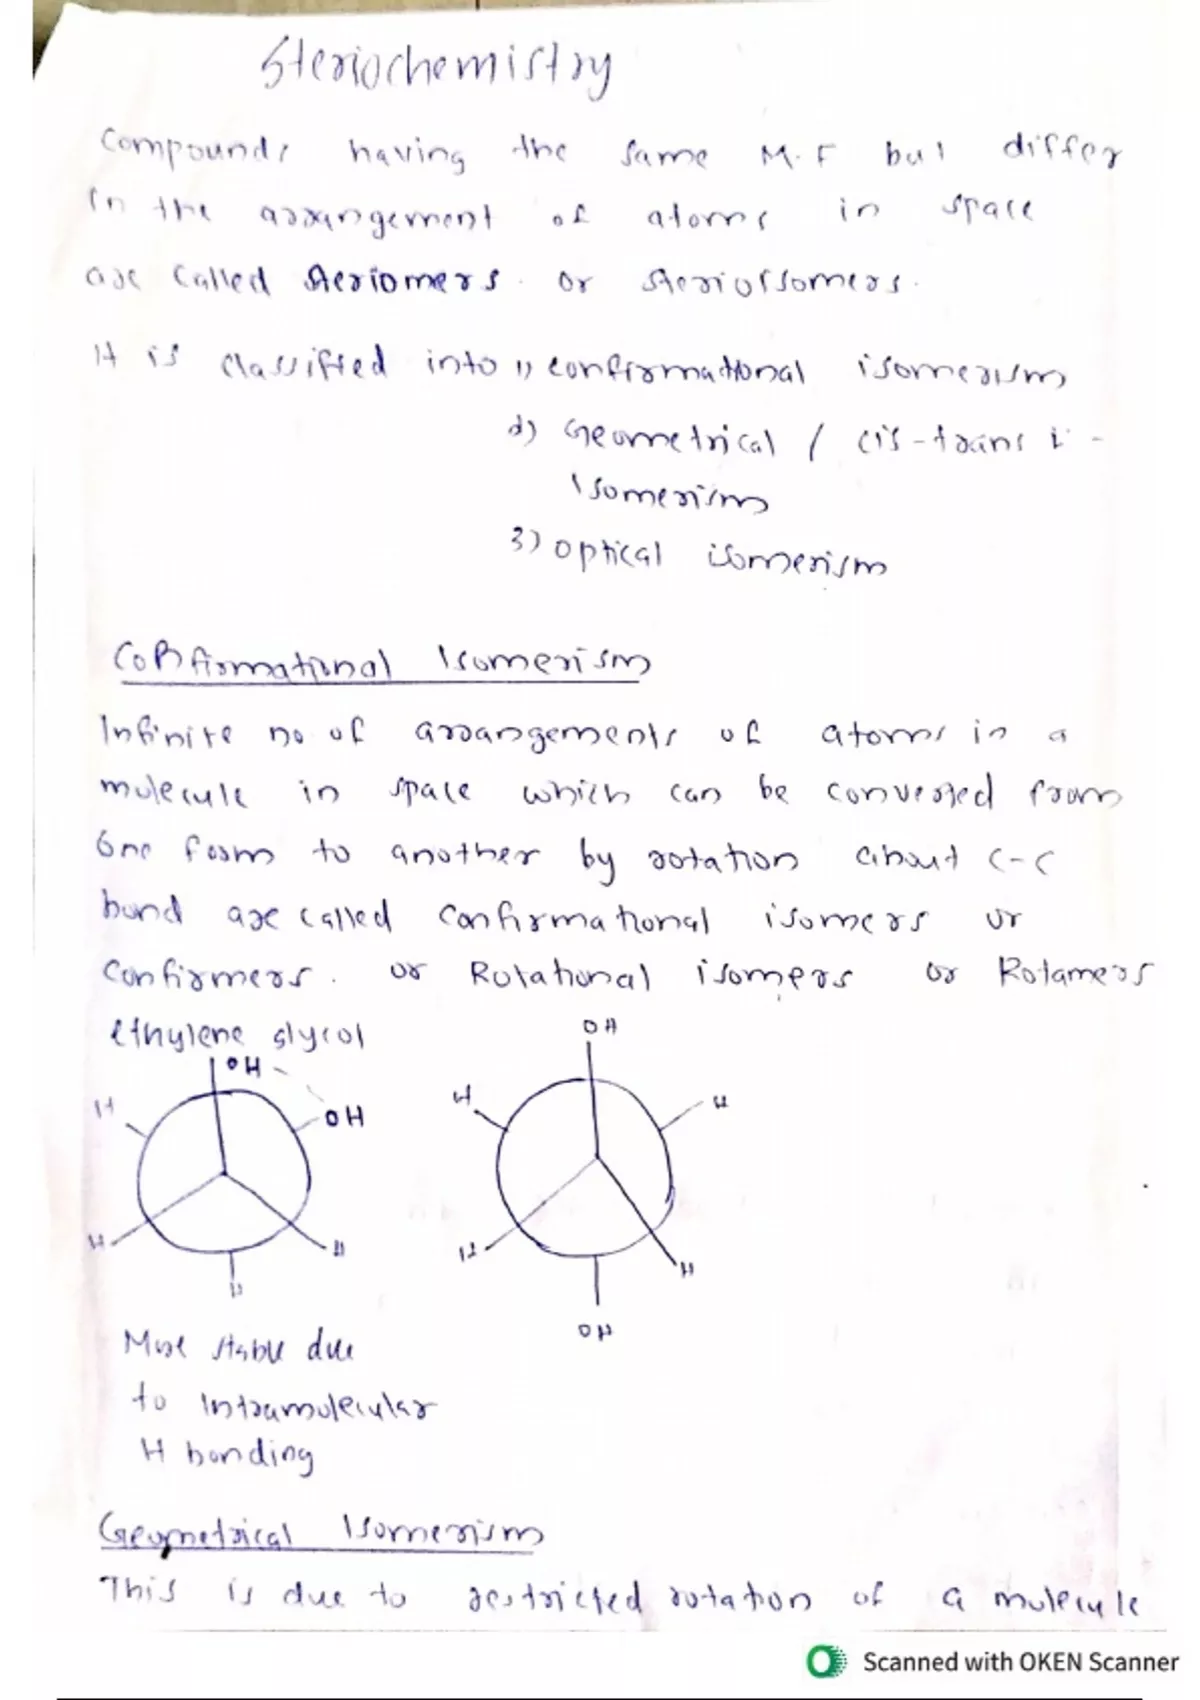 Steriochemistry
Compounds having the same M.F but differ
in the arrangement of atoms in space
are called steriomers. or steriofsomers.
It is classified into 1) confirmational isomerism
2) Geometrical / cis-trans i-
Isomerism
3) optical isomerism
Confirmational Isomerism
Infinite no of arrangements of atoms in a
molecule in space which can be converted from
one form to another by rotation about C-C
bond are called confirmational isomers or
confirmers. or Rotational isomers or Rotamers
ethylene glycol
OH
OH
H
OH
H
H
H
H
OH
H
H
H
H
OH
More stable due
to Intramolecular
H bonding
Geometrical Isomerism
This is due to restricted rotation of a molecule
Scanned with OKEN Scanner